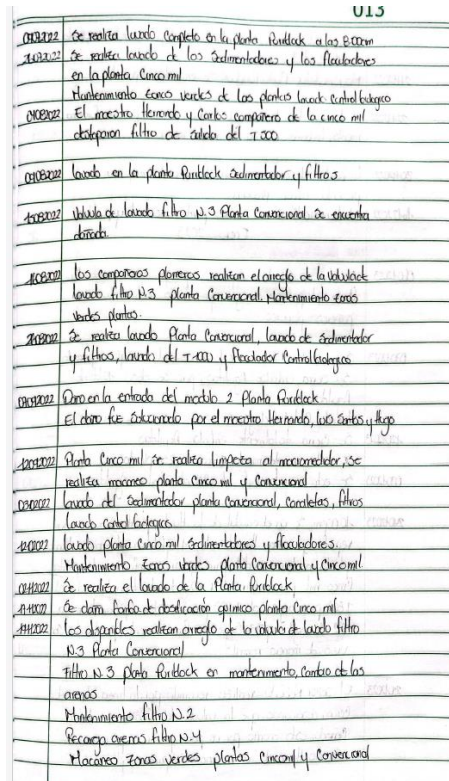 013
Se realiza lavado completo en la planta Puriblock a las 8:00am
Se realiza lavado de los Sedimentadores y los floculadores
en la planta Cinco mil
Mantenimiento zonas verdes de las plantas lavado control biologico
El maestro Hernando y Carlos compañero de la cinco mil
destaparon filtro de salida del T.500
lavado en la planta Puriblock sedimentador y filtros
Valvula de lavado filtro N.3 Planta Convencional se encuentra
dañada.
los compañeros planteros realizan el arreglo de la valvula de
lavado filtro N.3 planta Convencional. Mantenimiento zonas
verdes plantas.
Se realiza lavado Planta Convencional, lavado de sedimentador
y filtros, lavado del T-1000 y floculador Control biologico
Daño en la entrada del modulo 2 Planta Puriblock
El daño fue solucionado por el maestro Hernando, luis Santos y Hugo
Planta Cinco mil se realiza limpieza al macromedidor, se
realiza macaneo planta Cinco mil y Convencional
lavado del Sedimentador planta Convencional, canaletas, filtros
lavado control biologico
lavado planta cinco mil sedimentadores y floculadores.
Mantenimiento zonas verdes planta Convencional y Cinco mil
Se realiza el lavado de la Planta. Puriblock
Se daña bomba de dosificación quimico planta Cinco mil
los disponibles realizan arreglo de la valvula de lavado filtro
N.3 Planta Convencional
Filtro N.3 planta Puriblock en mantenimiento, cambio de las
arenas
Mantenimiento filtro N.2
Recarga arenas filtro N.4
Macaneo zonas verdes plantas Cinco mil y Convencional